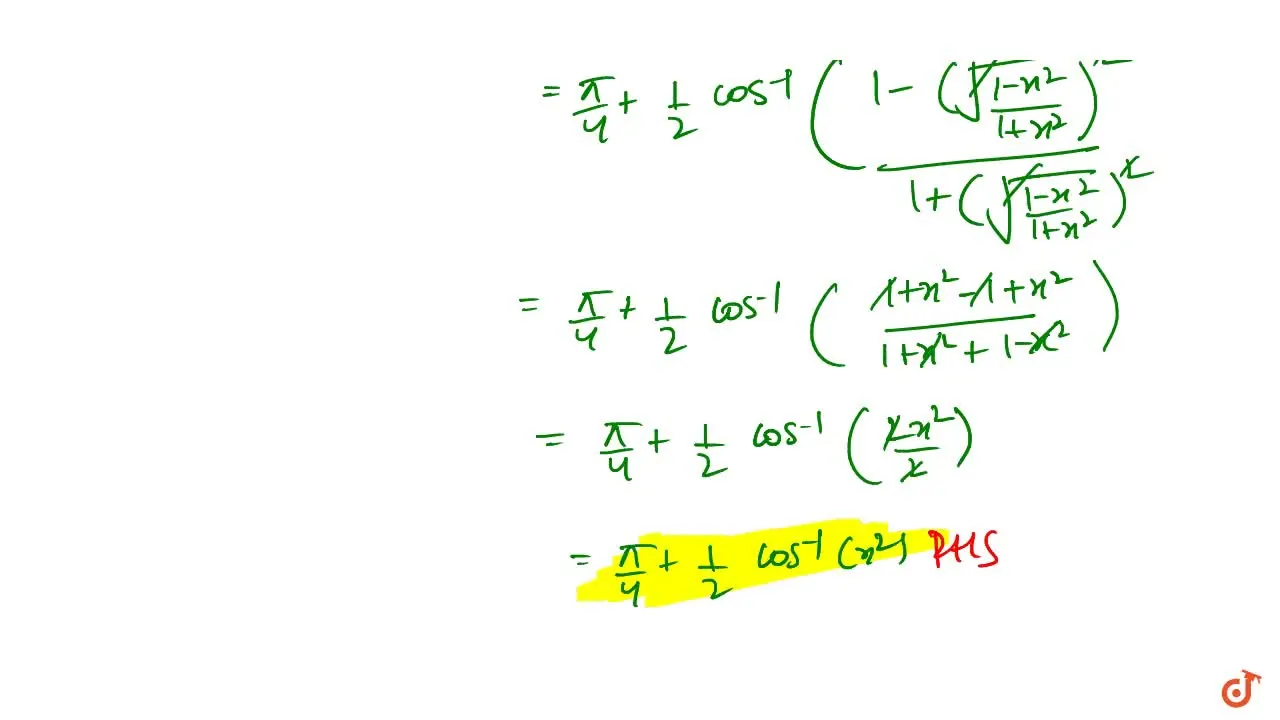 = π/4 + 1/2 cos⁻¹ ( (1 - (√((1-x²)/(1+x²)))²) / (1 + (√((1-x²)/(1+x²)))²) )
= π/4 + 1/2 cos⁻¹ ( (1+x² -1+x²) / (1+x² + 1-x²) )
= π/4 + 1/2 cos⁻¹ ( 2x²/2 )
= π/4 + 1/2 cos⁻¹ (x²) RHS